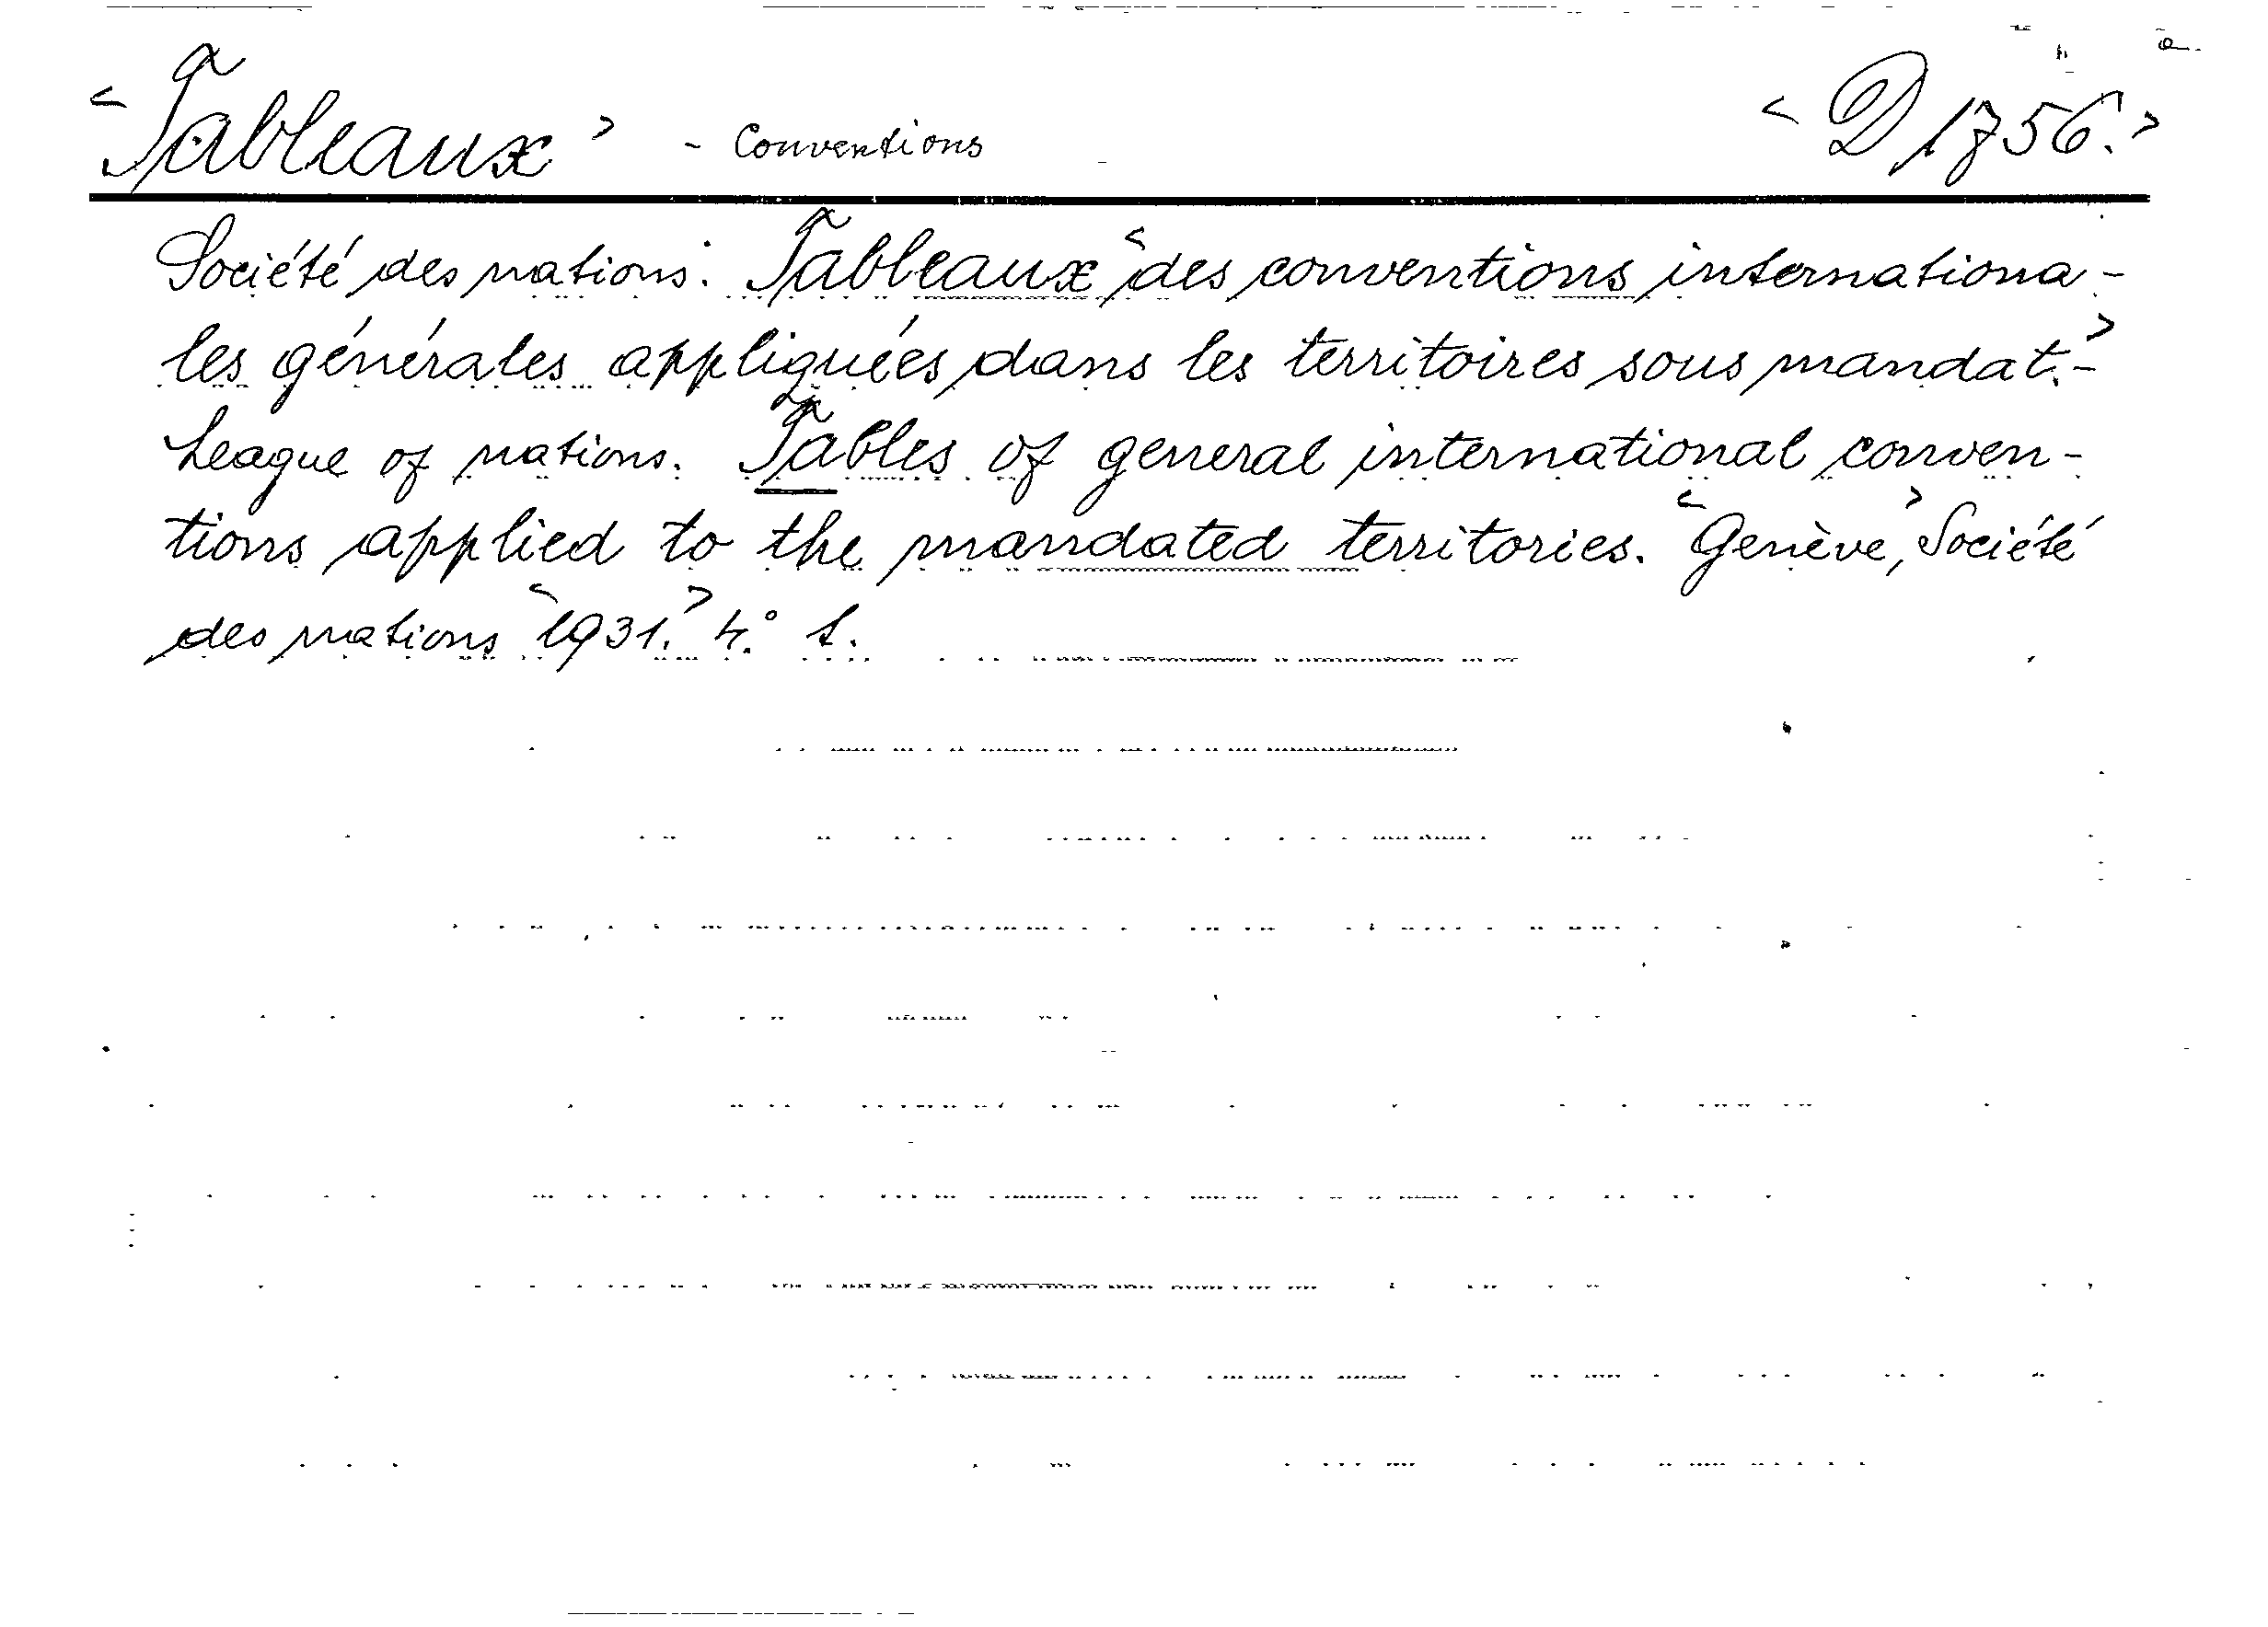 <Tableaux> - Conventions <D 1756.>
Société des nations. Tableaux <des conventions internationa-
les générales appliquées dans les territoires sous mandat.>-
League of nations. Tables of general international conven-
tions applied to the mandated territories. <Genève,> Société
des nations <1931.> 4.° 1.